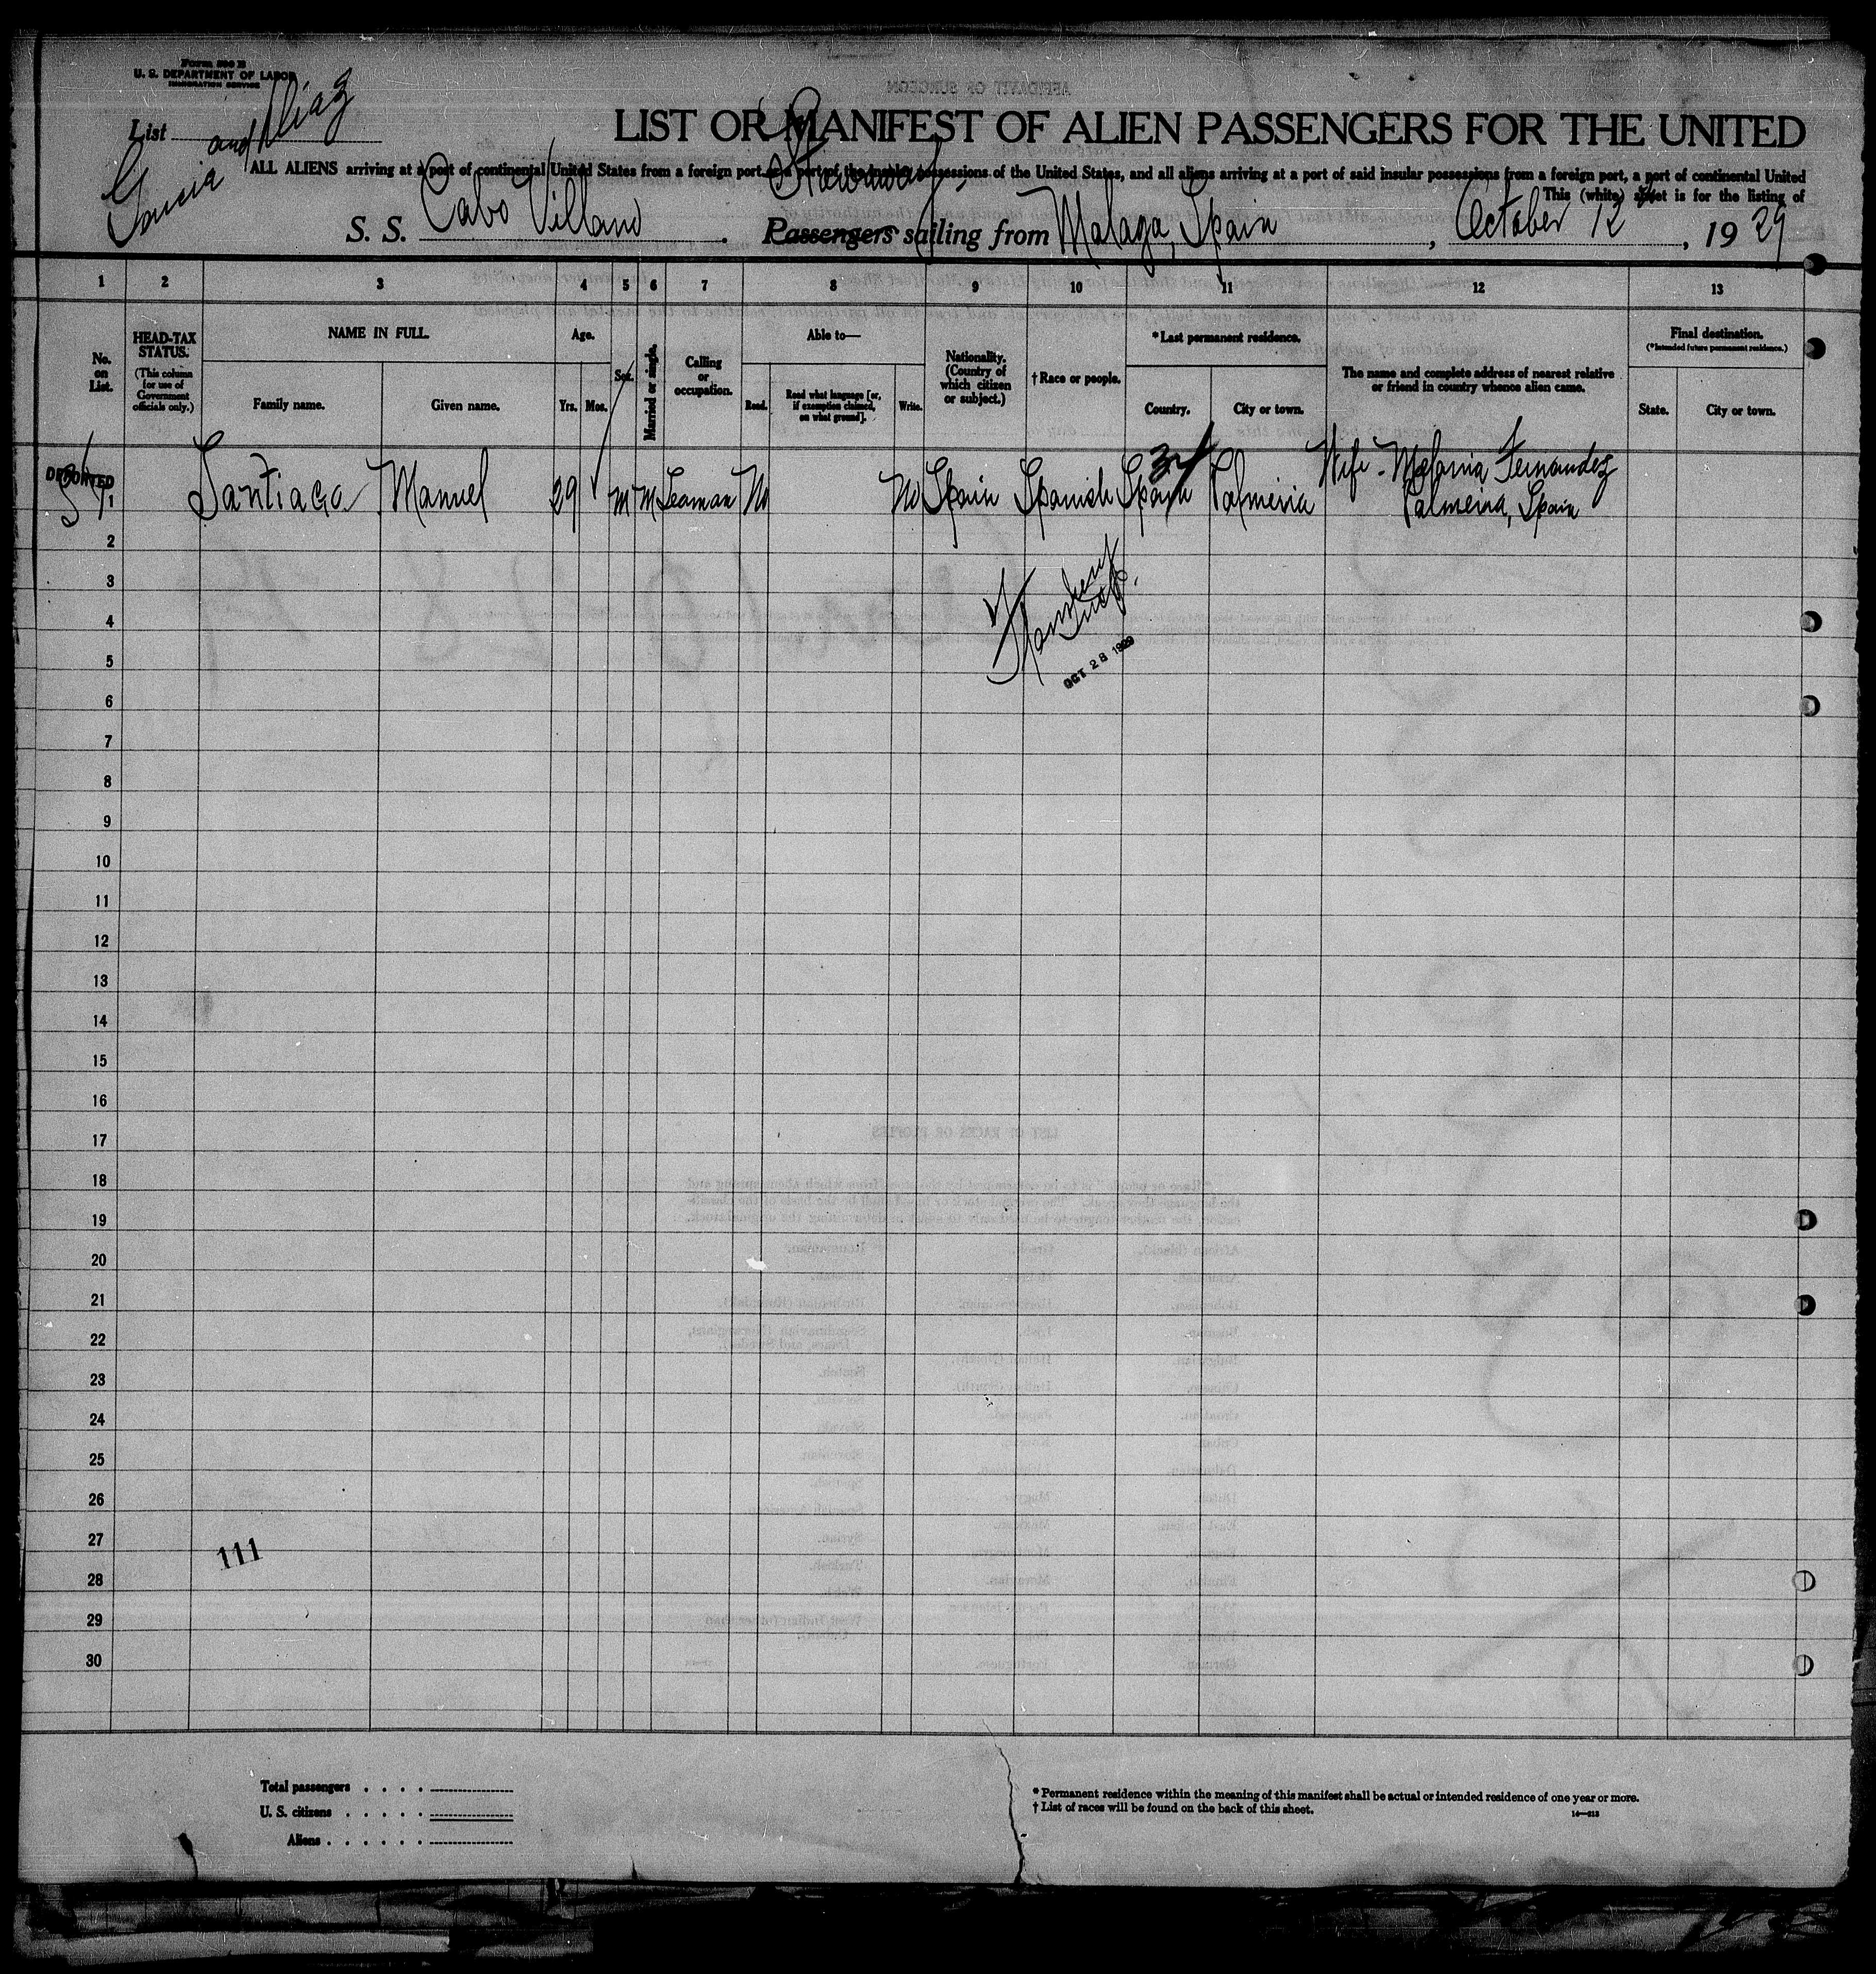 Form 500 B
U. S. DEPARTMENT OF LABOR
IMMIGRATION SERVICE
List
Garcia and Diaz
LIST OR MANIFEST OF ALIEN PASSENGERS FOR THE UNITED
ALL ALIENS arriving at a port of continental United States from a foreign port or a port of the insular possessions of the United States, and all aliens arriving at a port of said insular possessions from a foreign port, a port of continental United
This (white) sheet is for the listing of
Stowaway
S. S. Cabo Villano. Passengers sailing from Malaga, Spain, October 12, 1929
1 2 3 4 5 6 7 8 9 10 11 12 13
No. on List.
HEAD-TAX STATUS.
(This column for use of Government officials only.)
NAME IN FULL.
Family name.
Given name.
Age.
Yrs.
Mos.
Sex.
Married or single.
Calling or occupation.
Able to—
Read.
Read what language [or, if exemption claimed, on what ground].
Write.
Nationality. (Country of which citizen or subject.)
† Race or people.
* Last permanent residence.
Country.
City or town.
The name and complete address of nearest relative or friend in country whence alien came.
Final destination.
(* Intended future permanent residence.)
State.
City or town.
DEPORTED
1 Santiago Manuel 29 M M Seaman No No Spain Spanish Spain Palmeira Wife - Melania Fernandez
Palmeira, Spain
2
3
4
5
OCT 28 1929
6
7
8
9
10
11
12
13
14
15
16
17
18
19
20
21
22
23
24
25
26
27
111
28
29
30
Total passengers
U. S. citizens
Aliens
* Permanent residence within the meaning of this manifest shall be actual or intended residence of one year or more.
† List of races will be found on the back of this sheet.
14—213